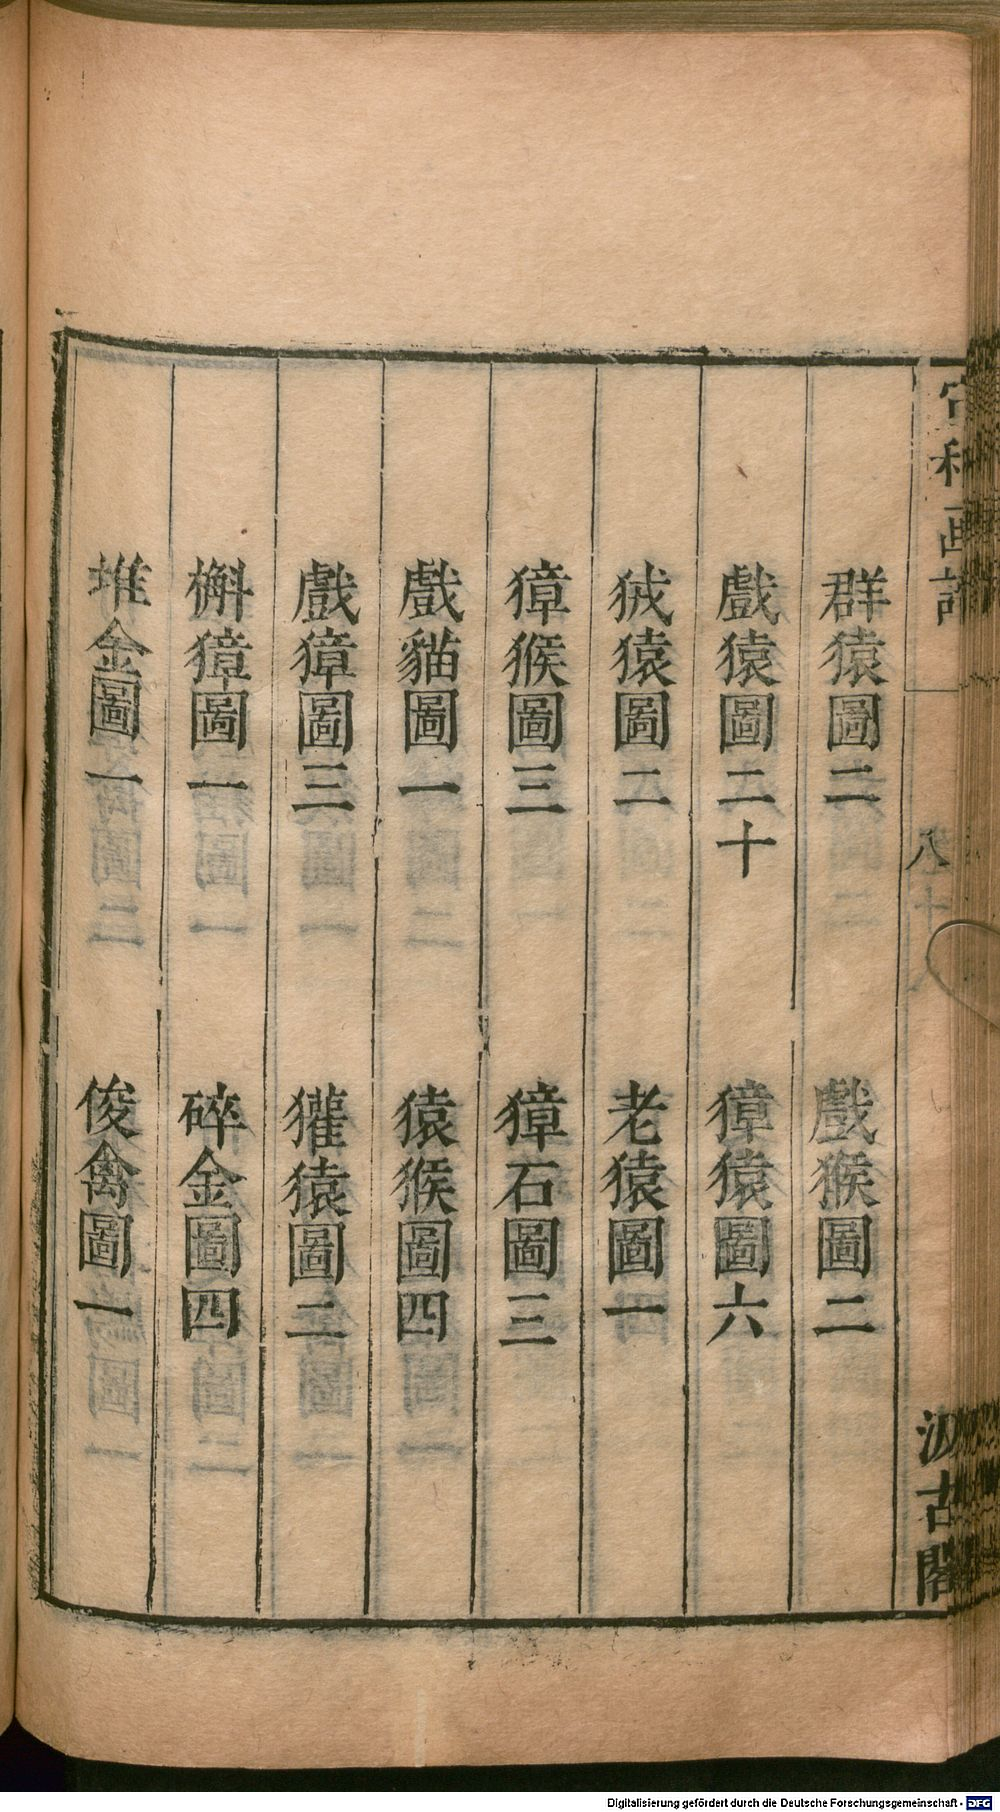 宣和画譜
卷十八
汲古閣
群猿圖二　戲猴圖二
戲猿圖二十　獐猿圖六
狨猿圖二　老猿圖一
獐猴圖三　獐石圖三
戲貓圖一　猿猴圖四
戲獐圖三　獾猿圖二
檞獐圖一　碎金圖四
堆金圖一　俊禽圖一
Digitalisierung gefördert durch die Deutsche Forschungsgemeinschaft - DFG